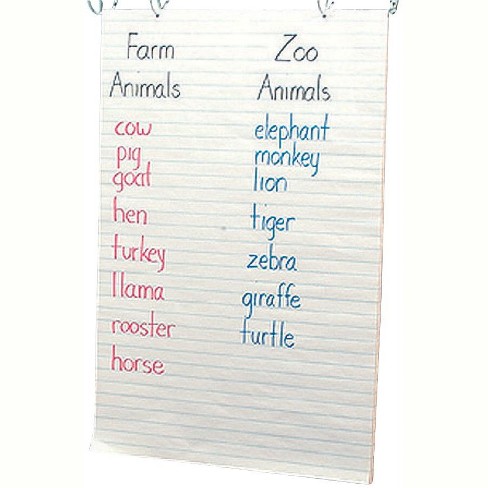 Farm
Animals
cow
pig
goat
hen
turkey
llama
rooster
horse
Zoo
Animals
elephant
monkey
lion
tiger
zebra
giraffe
turtle